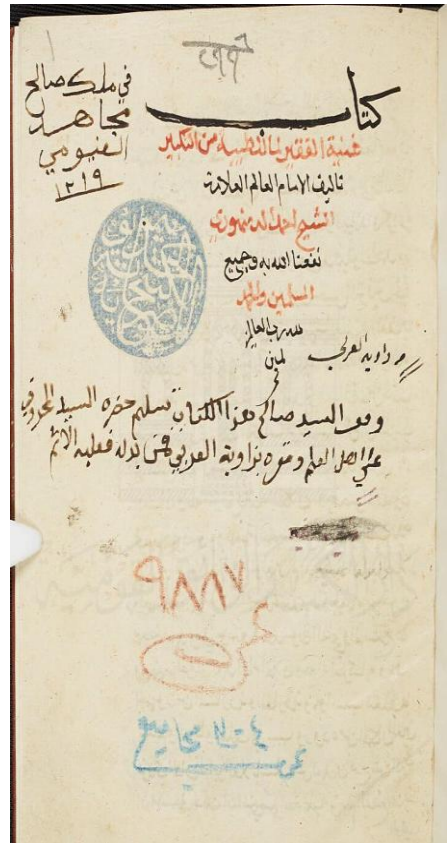 في ملك صالح
مجاهد
الفيومي
١٢١٩
كتاب
غنية الفقير
تاليف الامام العالم العلامة
الشيخ احمد الدمنهوري
نفعنا الله به وجميع
المسلمين والحمد
لله رب العالمين
وقف السيد صالح هذا الكتاب تسليم حضرة السيد المحروقي
على اهل العلم ومقره بزاوية العربي فمن بدله فعليه الاثم
٩٨٨٧